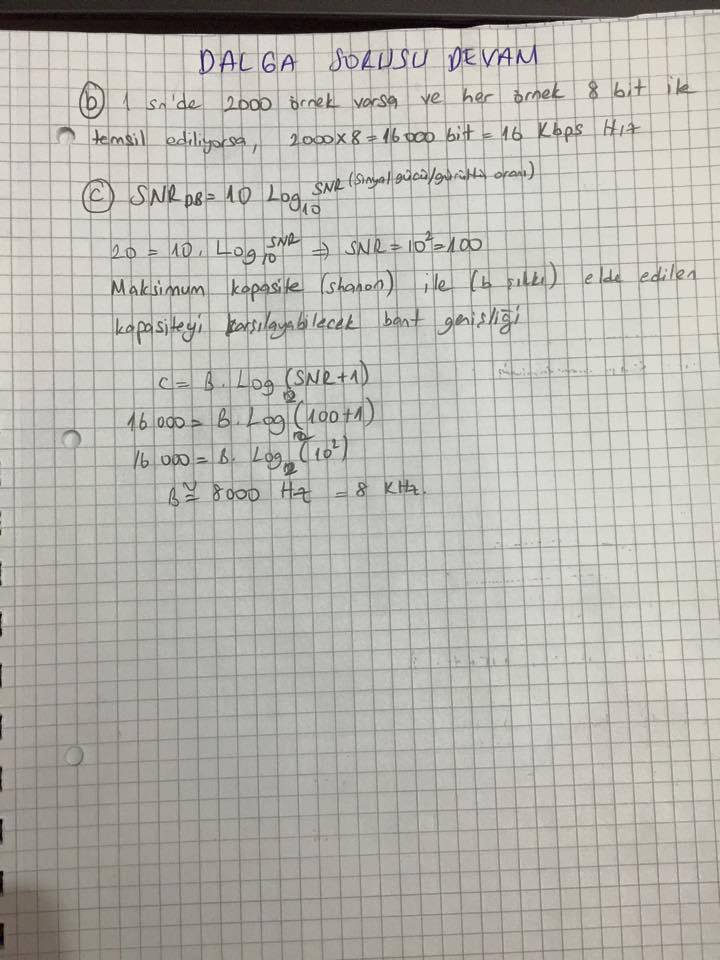 DALGA SORUSU DEVAM
b) 1 sn'de 2000 örnek varsa ve her örnek 8 bit ile
temsil ediliyorsa, 2000x8=16000 bit = 16 Kbps Hız
c) SNR DB = 10 Log10 SNR (Sinyal gücü/gürültü oranı)
20 = 10. Log10 SNR ⇒ SNR = 10² = 100
Maksimum kapasite (shanon) ile (b şıkkı) elde edilen
kapasiteyi karşılayabilecek bant genişliği
C = B. Log2 (SNR+1)
16 000 = B. Log2 (100+1)
16 000 = B. Log2 (10²)
B ≅ 8000 Hz = 8 KHz.